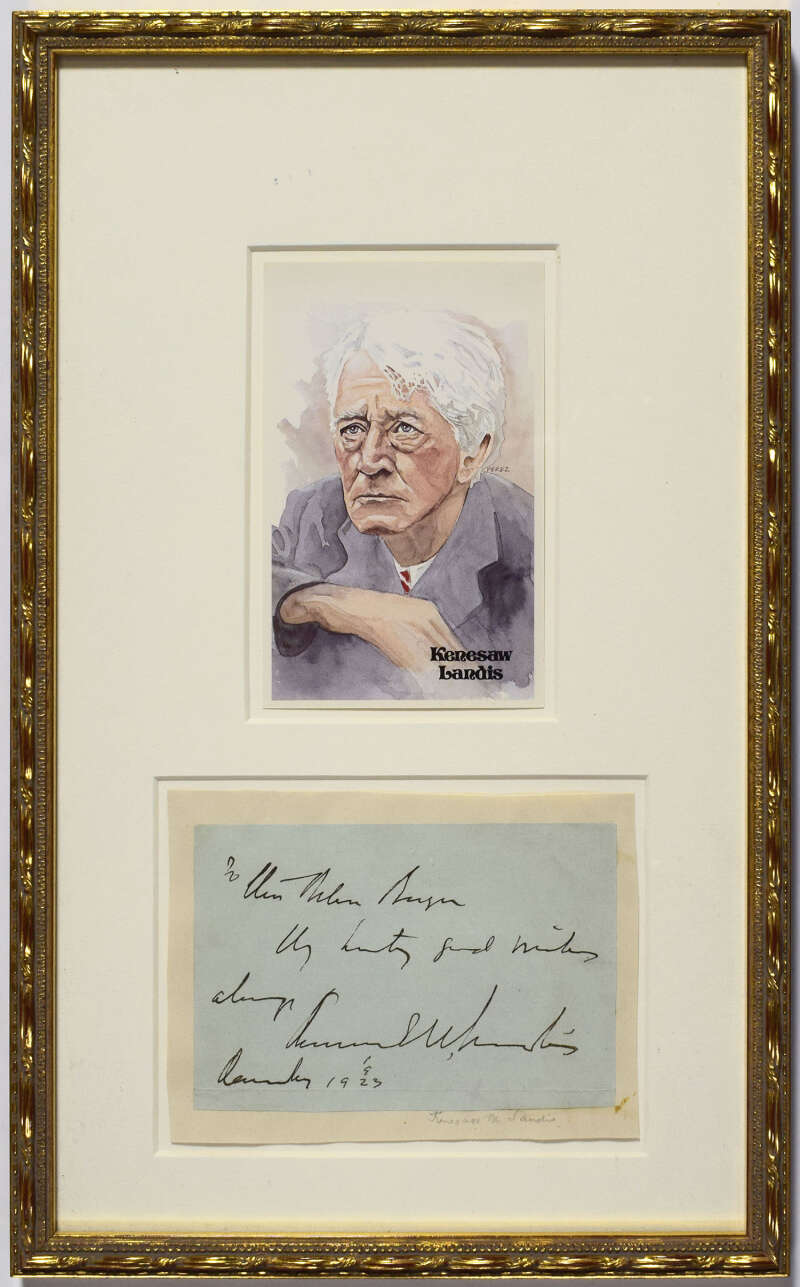 PEREZ
Kenesaw
Landis
To Miss Helen
My hearty good wishes
always
Kenesaw M Landis
December 19 1923
Kenesaw M Landis